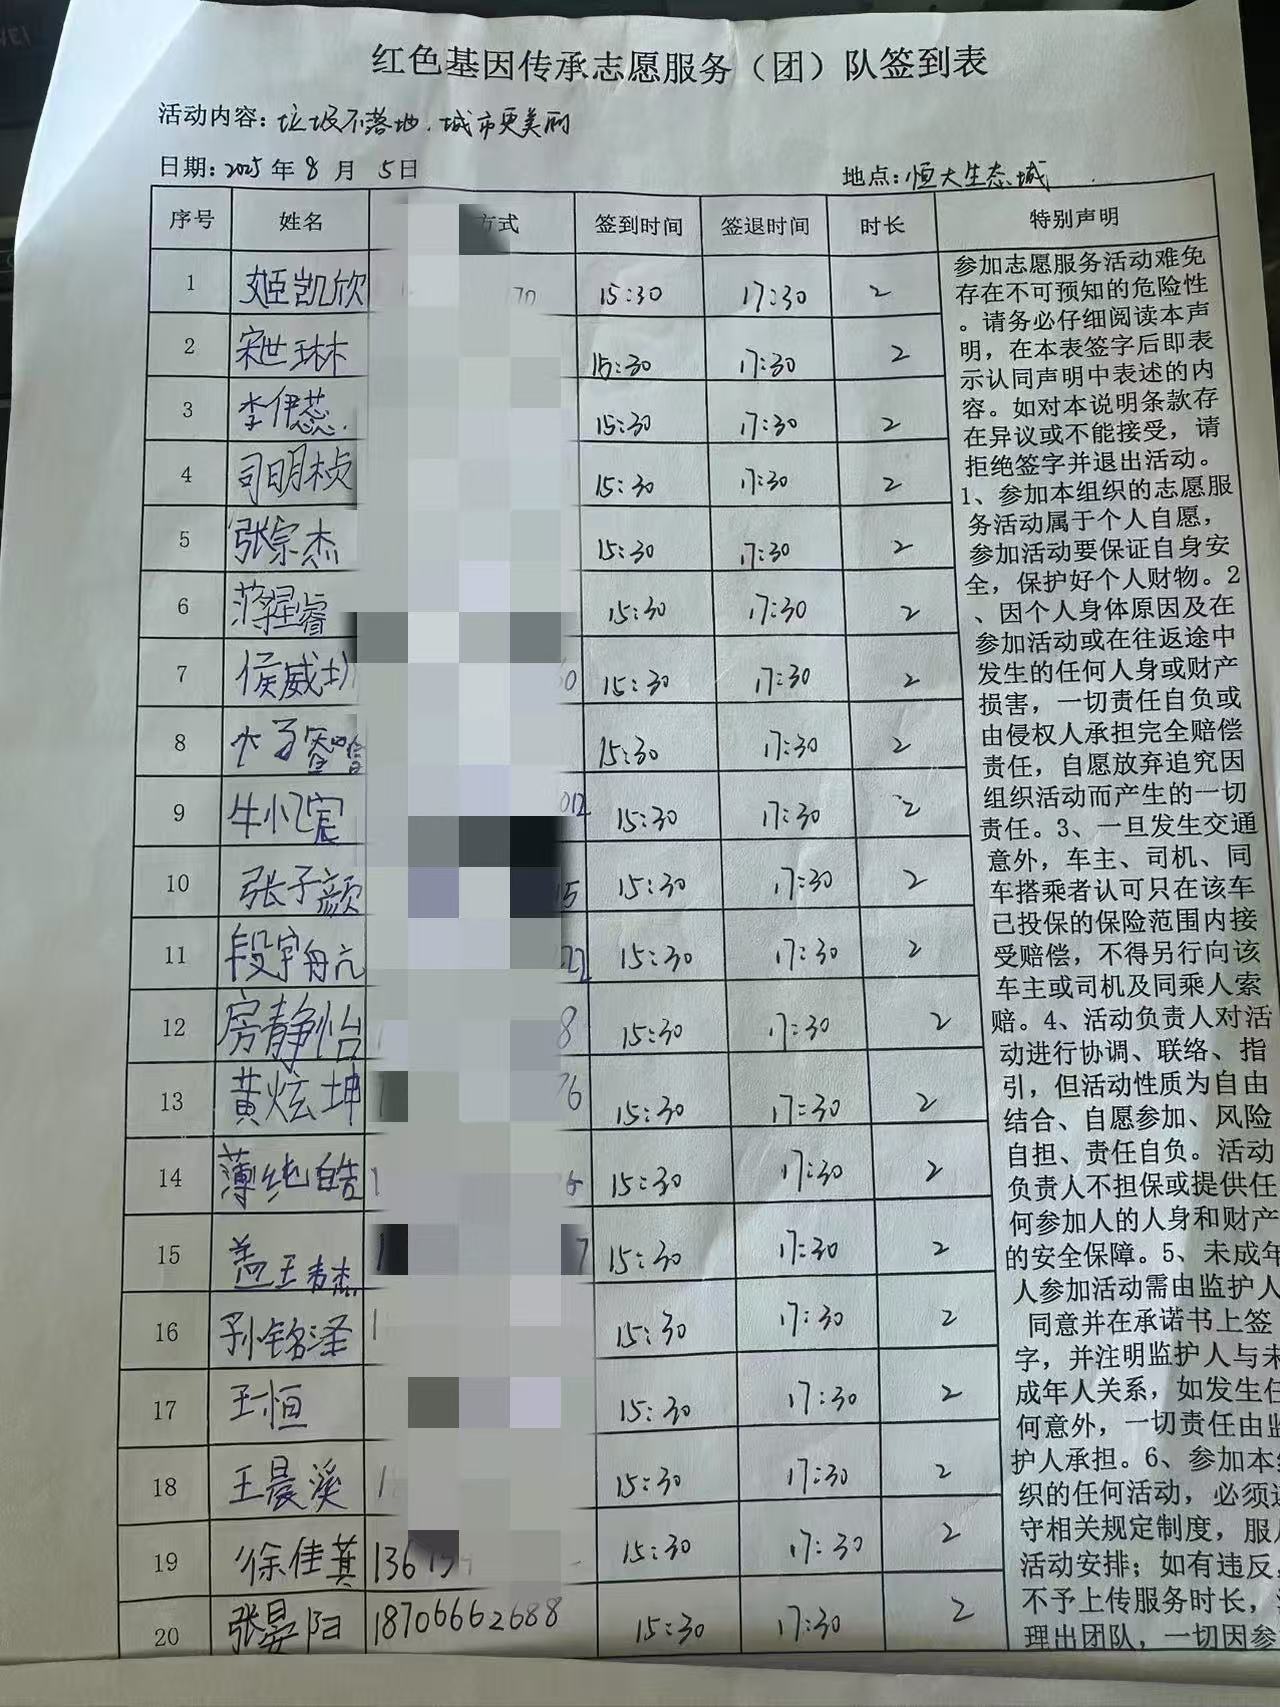 红色基因传承志愿服务（团）队签到表
活动内容：垃圾不落地.城市更美丽
日期：2025年8月5日 地点：恒大生态城
序号 姓名 方式 签到时间 签退时间 时长 特别声明
1 姬凯欣 70 15:30 17:30 2
2 宋世琳 15:30 17:30 2
3 李伊蕊 15:30 17:30 2
4 司明桢 15:30 17:30 2
5 张宗杰 15:30 17:30 2
6 15:30 17:30 2
7 侯威 15:30 17:30 2
8 15:30 17:30 2
9 牛小宸 012 15:30 17:30 2
10 张子颜 15 15:30 17:30 2
11 段宇航 22 15:30 17:30 2
12 房静怡 8 15:30 17:30 2
13 黄炫坤 1 76 15:30 17:30 2
14 薄纯皓 1 6 15:30 17:30 2
15 盖王 1 7 15:30 17:30 2
16 孙铭泽 1 15:30 17:30 2
17 王恒 15:30 17:30 2
18 王晨溪 1 15:30 17:30 2
19 徐佳其 136 15:30 17:30 2
20 张晏阳 18706662688 15:30 17:30 2
参加志愿服务活动难免
存在不可预知的危险性
。请务必仔细阅读本声
明，在本表签字后即表
示认同声明中表述的内
容。如对本说明条款存
在异议或不能接受，请
拒绝签字并退出活动。
1、参加本组织的志愿服
务活动属于个人自愿，
参加活动要保证自身安
全，保护好个人财物。2
、因个人身体原因及在
参加活动或在往返途中
发生的任何人身或财产
损害，一切责任自负或
由侵权人承担完全赔偿
责任，自愿放弃追究因
组织活动而产生的一切
责任。3、一旦发生交通
意外，车主、司机、同
车搭乘者认可只在该车
已投保的保险范围内接
受赔偿，不得另行向该
车主或司机及同乘人索
赔。4、活动负责人对活
动进行协调、联络、指
引，但活动性质为自由
结合、自愿参加、风险
自担、责任自负。活动
负责人不担保或提供任
何参加人的人身和财产
的安全保障。5、未成年
人参加活动需由监护人
同意并在承诺书上签
字，并注明监护人与未
成年人关系，如发生任
何意外，一切责任由监
护人承担。6、参加本组
织的任何活动，必须遵
守相关规定制度，服从
活动安排；如有违反，
不予上传服务时长，
理出团队，一切因参